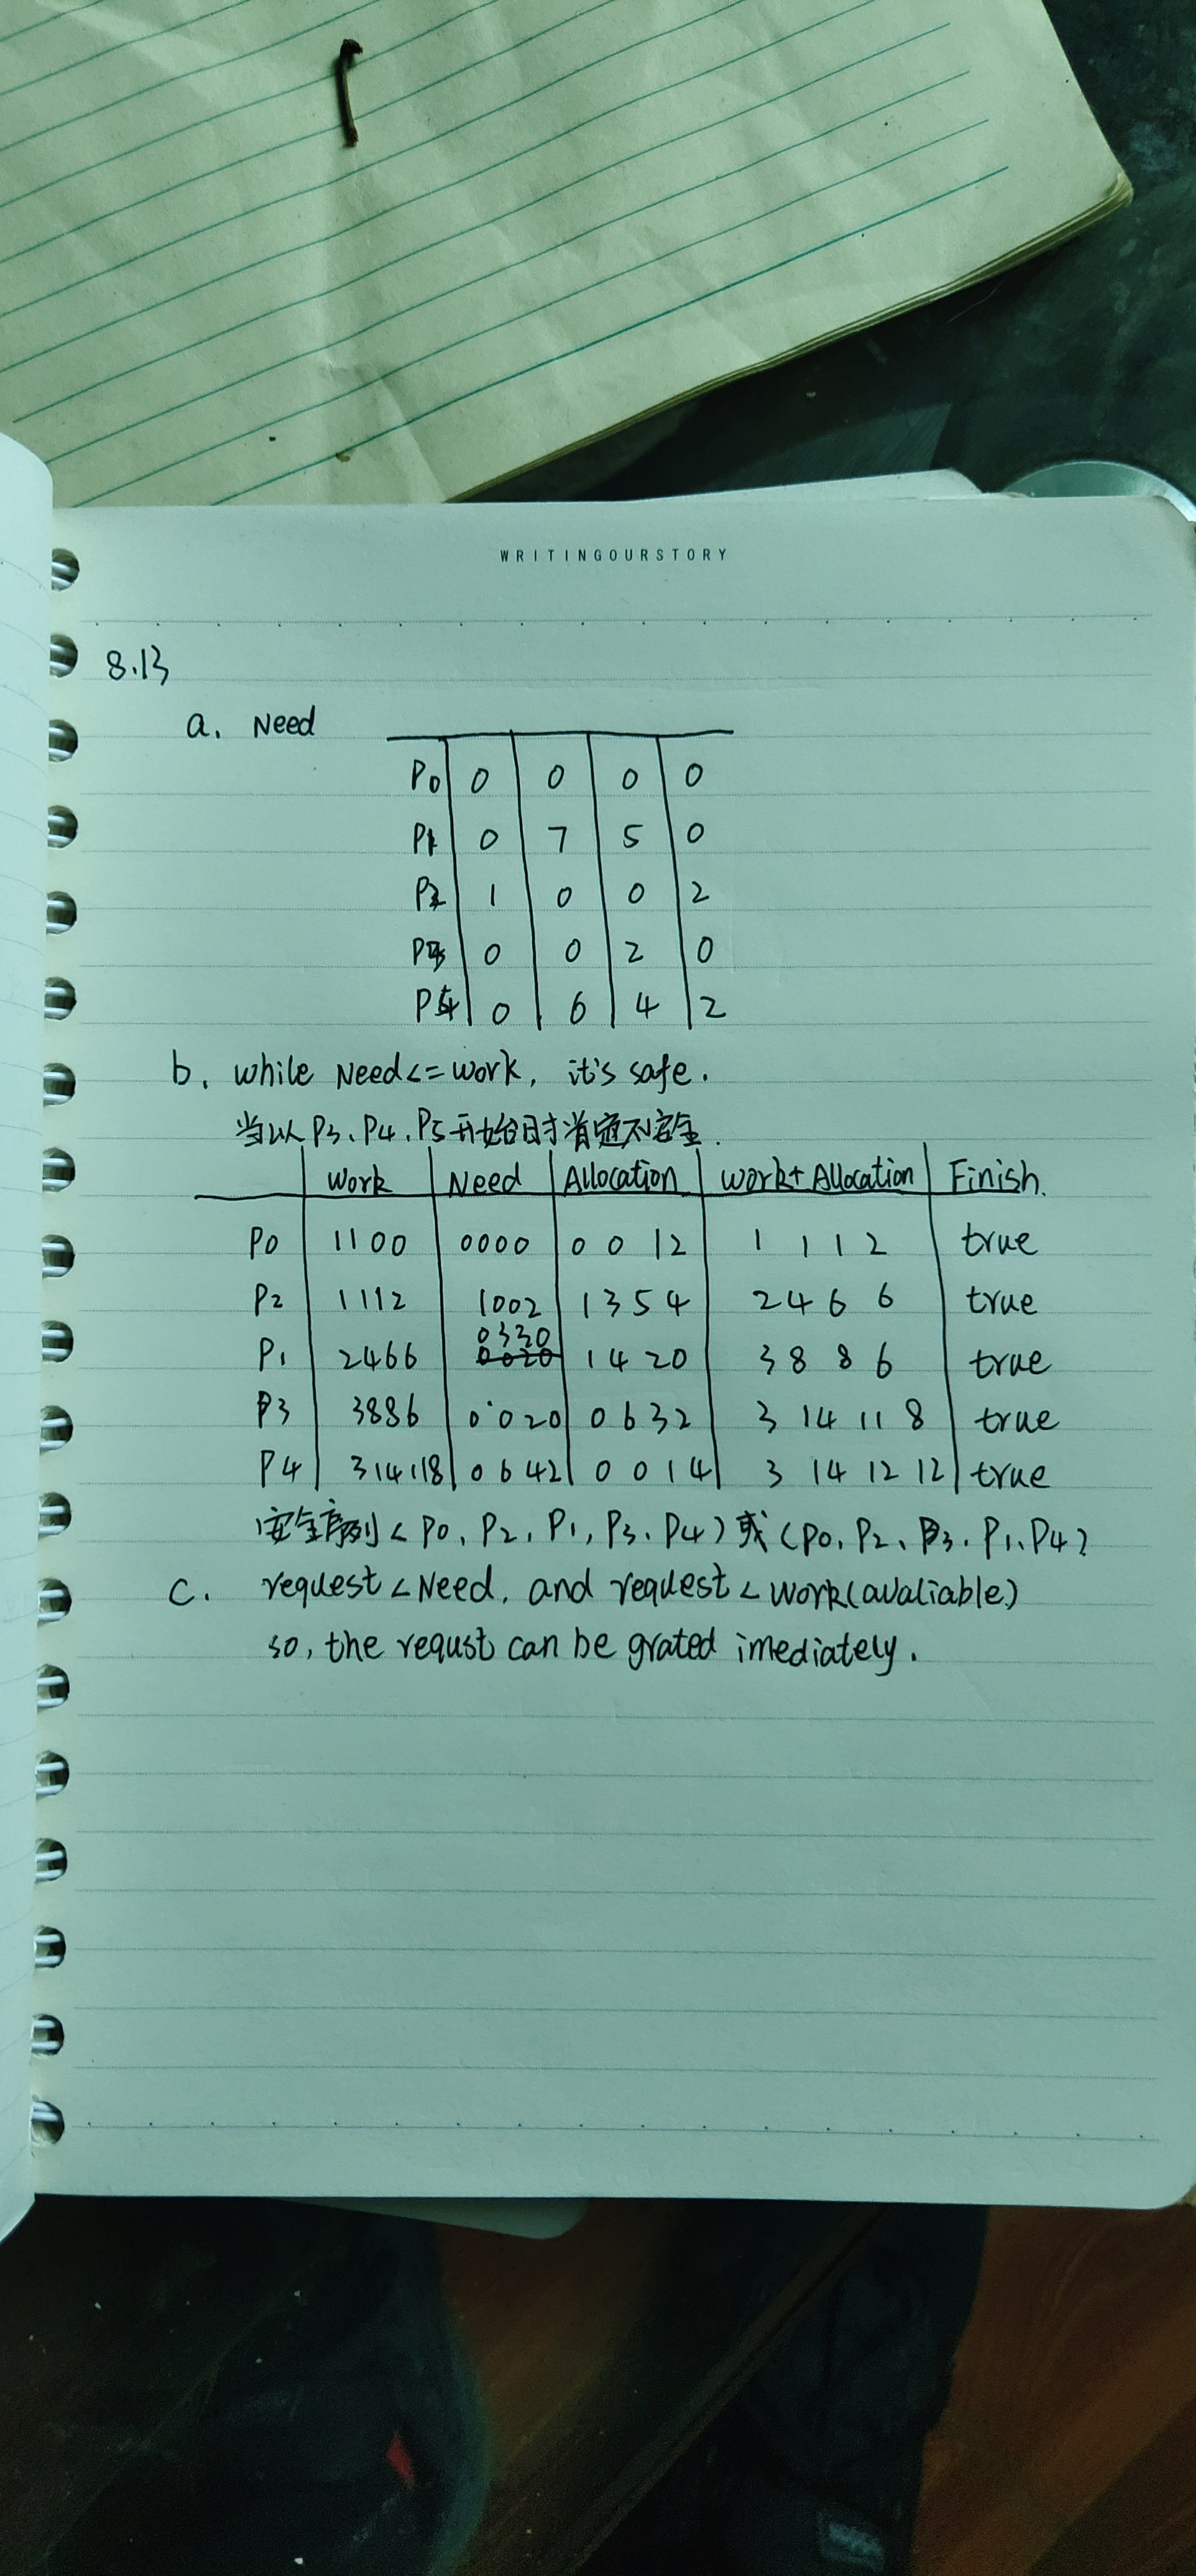 WRITINGOURSTORY
8.13
a. Need
P0 0 0 0 0
P1 0 7 5 0
P2 1 0 0 2
P3 0 0 2 0
P4 0 6 4 2
b. while Need<=work, it's safe.
当以P3、P4、P5开始时肯定不安全.
Work Need Allocation work+Allocation Finish.
P0 1100 0000 0 0 1 2 1 1 1 2 true
P2 1112 1002 1 3 5 4 2 4 6 6 true
P1 2466 0330 1 4 2 0 3 8 8 6 true
P3 3886 0020 0 6 3 2 3 14 11 8 true
P4 3 14 11 8 0 6 4 2 0 0 1 4 3 14 12 12 true
安全序列<P0、P2、P1、P3、P4>或<P0、P2、P3、P1、P4>
c. request<Need, and request<work(avaliable)
so, the requst can be grated imediately.